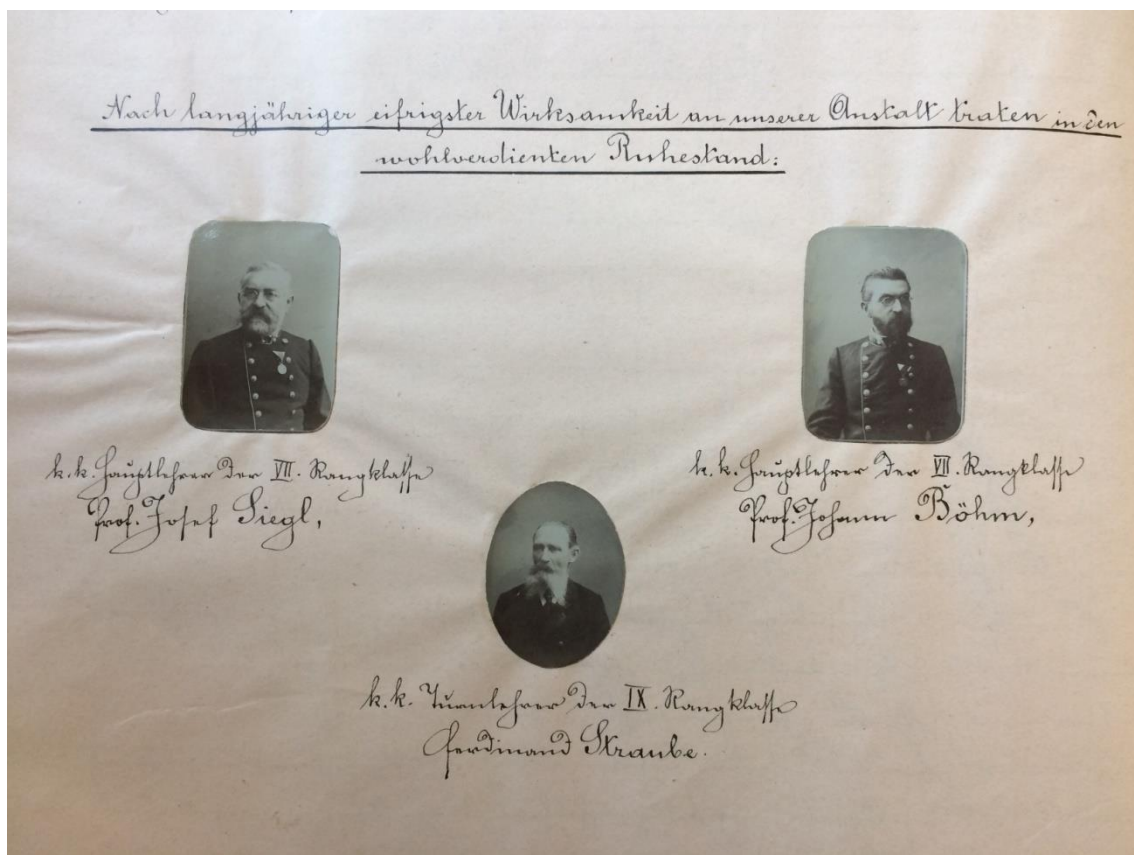 Nach langjähriger eifrigster Wirksamkeit an unserer Anstalt traten in den
wohlverdienten Ruhestand:
k. k. Hauptlehrer der VII. Rangklasse
Prof. Josef Siegl,
k. k. Hauptlehrer der VII. Rangklasse
Prof. Johann Böhm,
k. k. Turnlehrer der IX. Rangklasse
Ferdinand Straube.